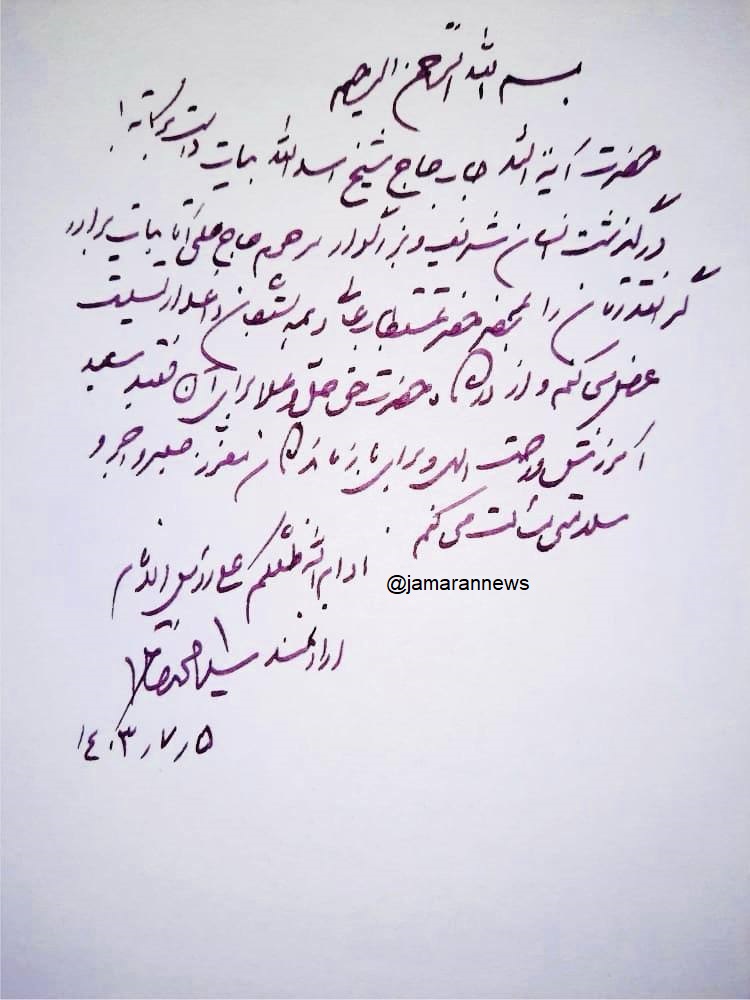 بسم الله الرحمن الرحیم
حضرت آیة الله جناب حاج شیخ اسدالله بیات دامت برکاته!
درگذشت انسان شریف و بزرگوار مرحوم حاج علی آقا بیات برادر
گرانقدرتان را بمحضر حضرت مستطاب عالی و همه بستگان داغدار تسلیت
عرض می کنم و از درگاه حضرت حق جل و علا برای آن فقید سعید
آمرزش و رحمت الهی و برای بازماندگان معزز صبر و اجر و
سلامتی مسألت می کنم.
ادام الله ظلکم علی رؤس الانام
@jamarannews
ارادتمند سید محمد خاتمی
۱۴۰۳ر۷ر۵